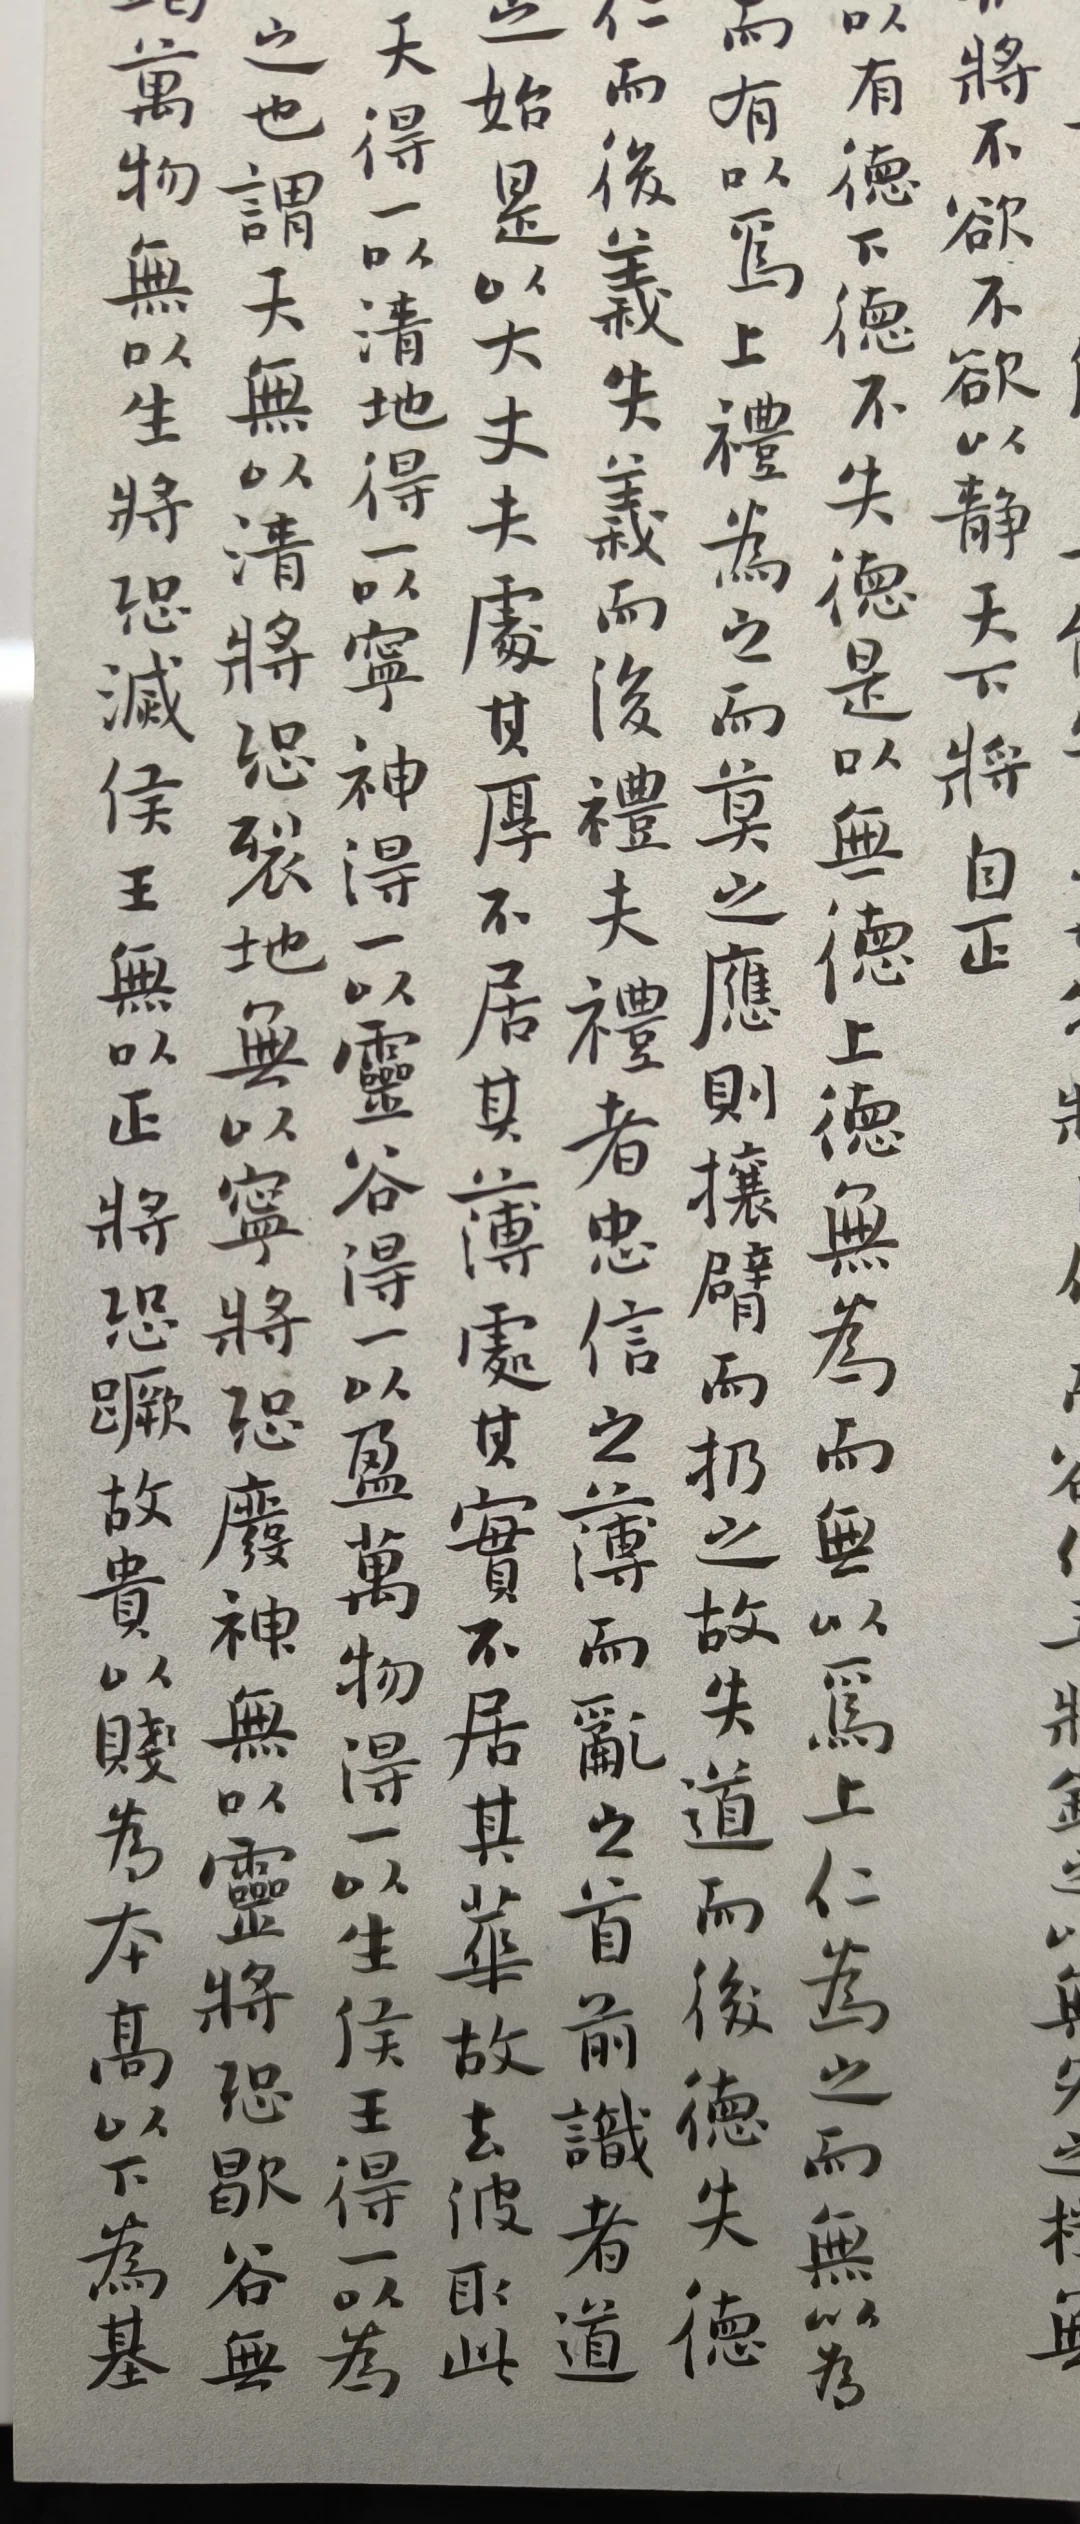 將鎮之以無名之樸無
將不欲不欲以靜天下將自正
以有德下德不失德是以無德上德無為而無以爲上仁為之而無以為
而有以爲上禮為之而莫之應則攘臂而扔之故失道而後德失德
仁而後義失義而後禮夫禮者忠信之薄而亂之首前識者道
之始是以大丈夫處其厚不居其薄處其實不居其華故去彼取此
天得一以清地得一以寧神得一以靈谷得一以盈萬物得一以生侯王得一以為
之也謂天無以清將恐裂地無以寧將恐廢神無以靈將恐歇谷無
竭萬物無以生將恐滅侯王無以正將恐蹶故貴以賤為本高以下為基